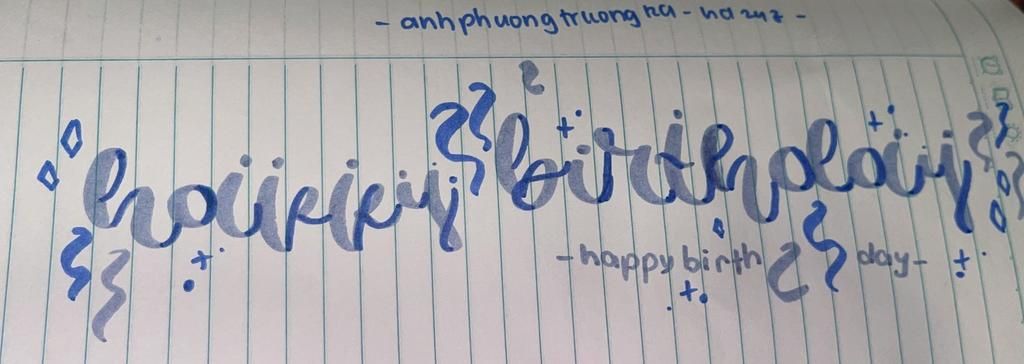 - anhphuongtruongka - ha
happy birthday
- happy birth day -